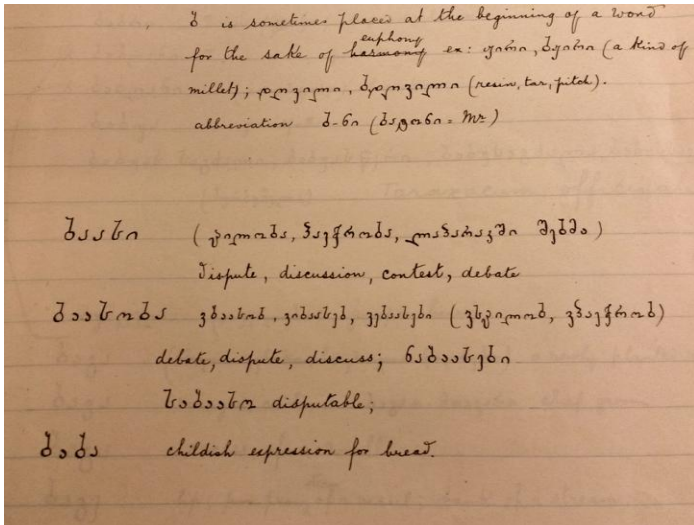 ბ is sometimes placed at the beginning of a word
euphony
for the sake of harmony ex: ჟირი, ბჟირი (a kind of
millet); დღვილი, ბდღვილი (resin, tar, pitch).
abbreviation ბ-ნი (ბატონი = Mr)
ბაასი (ცილობა, ბაექრობა, ლაპარაკში შებმა)
Dispute, discussion, contest, debate
ბაასობა ვბაასობ, ვიბაასებ, ვებაასები (ვსცილობ, ვპაექრობ)
debate, dispute, discuss; ნაბაასები
საბაასო disputable;
ბაბა childish expression for bread.